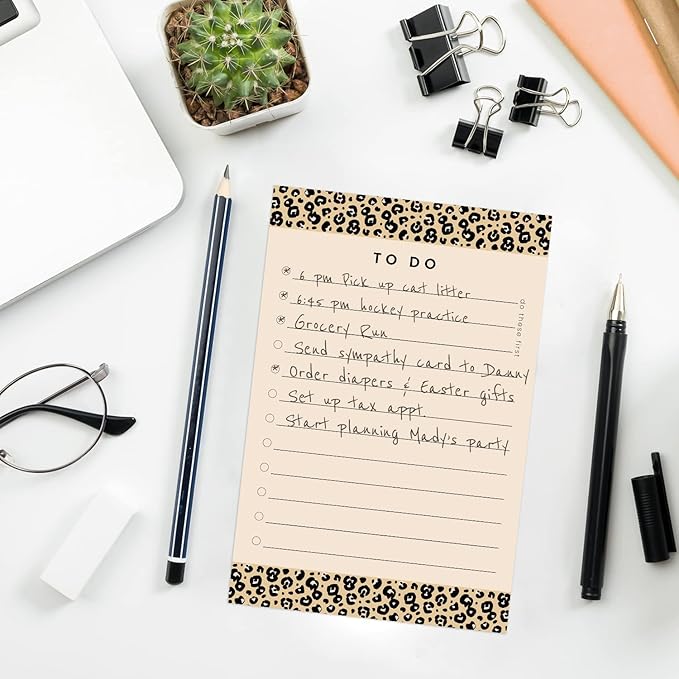 TO DO
6 pm Pick up cat litter
6:45 pm hockey practice
Grocery Run
do these first
Send sympathy card to Danny
Order diapers & Easter gifts
Set up tax appt.
Start planning Mady's party